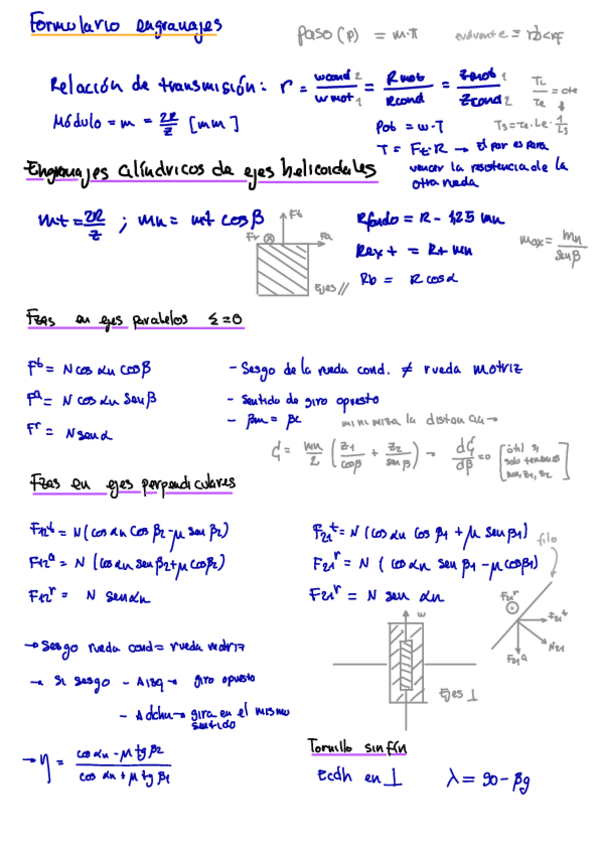 Formulario engranajes
paso (p) = m·π    evolvente = rb<rf
Relación de transmisión: r = ωcond 2 / ωmot 1 = Rmot / Rcond = Zmot 1 / Zcond 2
Módulo = m = 2R/Z [mm]
Pot = ω·T
T = Ft·R → El par es para
vencer la resistencia de la
otra rueda
Engranajes cilíndricos de ejes helicoidales
mt = 2R/Z ; mn = mt cosβ
Rfondo = R - 1,25 mn
Rext = R + mn
Rb = R cosα
max = mn / senβ
Ft
Fr
Fa
Ejes //
Fzas en ejes paralelos Σ=0
Ft = N cos αn cosβ
Fa = N cos αn senβ
Fr = N senα
- Sesgo de la rueda cond. ≠ rueda motriz
- Sentido de giro opuesto
- βm = βc
minimiza la distancia →
C = mn/2 (Z1/cosβ + Z2/senβ) → dC/dβ = 0 [útil si solo tenemos mn, Z1, Z2]
Fzas en ejes perpendiculares
F12t = N (cos αn cos β2 - μ sen β2)
F12a = N (cos αn sen β2 + μ cos β2)
F12r = N sen αn
F21t = N (cos αn cos β1 + μ sen β1)
F21r = N (cos αn sen β1 - μ cosβ1)
F21r = N sen αn
filo
F21r
F21t
N21
F21a
ω
Ejes ⊥
→ Sesgo rueda cond = rueda motriz
→ Si sesgo - A izq → giro opuesto
- A dcha → gira en el mismo
sentido
→ η = (cos αn - μ tg β2) / (cos αn + μ tg β1)
Tornillo sinfín
Ecdh en ⊥    λ = 90 - βg